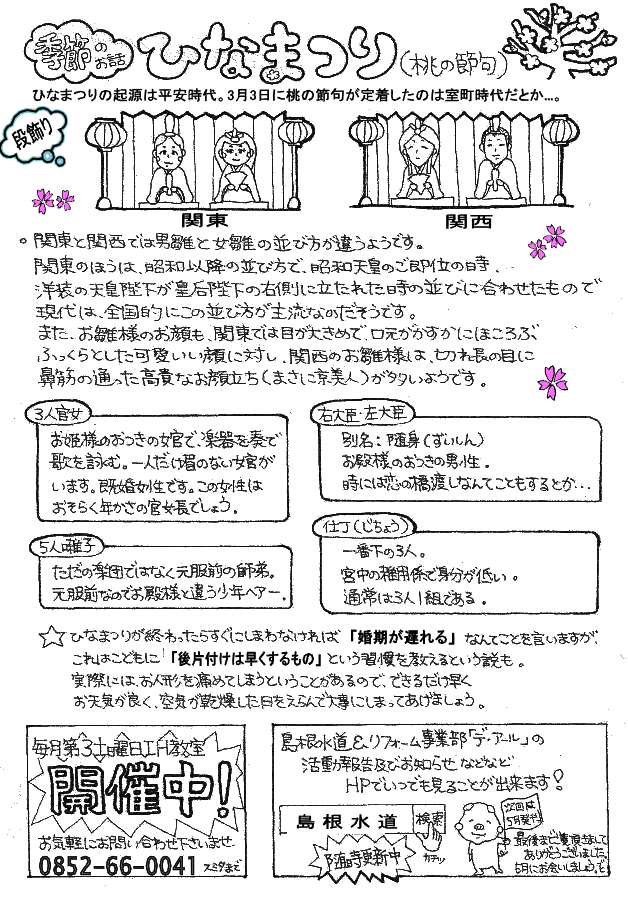 季節のお話 ひなまつり(桃の節句)
ひなまつりの起源は平安時代。3月3日に桃の節句が定着したのは室町時代だとか…。
段飾り
関東
関西
。関東と関西では男雛と女雛の並び方が違うようです。
関東のほうは、昭和以降の並び方で、昭和天皇のご即位の時、
洋装の天皇陛下が皇后陛下の右側に立たれた時の並びに合わせたもので
現代は、全国的にこの並び方が主流なのだそうです。
また、お雛様のお顔も、関東では目が大きめで、口元がかすかにほころぶ
ふっくらとした可愛いい顔に対し、関西のお雛様は、切れ長の目に
鼻筋の通った高貴なお顔立ち(まさに京美人)が多いようです。
3人官女
お姫様のおつきの女官で、楽器を奏で
歌を詠む。一人だけ眉のない女官が
います。既婚女性です。この女性は
おそらく年かさの官女長でしょう。
右大臣・左大臣
別名:随身(ずいしん)
お殿様のおつきの男性。
時には恋の橋渡しなんてこともするとか…
5人囃子
ただの楽団ではなく元服前の師弟。
元服前なのでお殿様と違う少年ヘアー。
仕丁(じちょう)
一番下の3人。
宮中の雑用係で身分が低い。
通常は3人1組である。
☆ひなまつりが終わったらすぐにしまわなければ「婚期が遅れる」なんてことを言いますが、
これはこどもに「後片付けは早くするもの」という習慣を教えるという説も。
実際には、お人形を痛めてしまうということがあるので、できるだけ早く
お天気が良く、空気が乾燥した日をえらんで大事にしまってあげましょう。
毎月第3土曜日IH教室
開催中!
お気軽にお問い合わせ下さいませ
0852-66-0041 スミダまで
島根水道&リフォーム事業部「デ・アール」の
活動報告及びお知らせなどなど
HPでいつでも見ることが出来ます!
島根水道 検索
随時更新中
カチッ
次回は
5月発行
最後までご覧頂きまして
ありがとうございました。
5月にお会いしましょうで